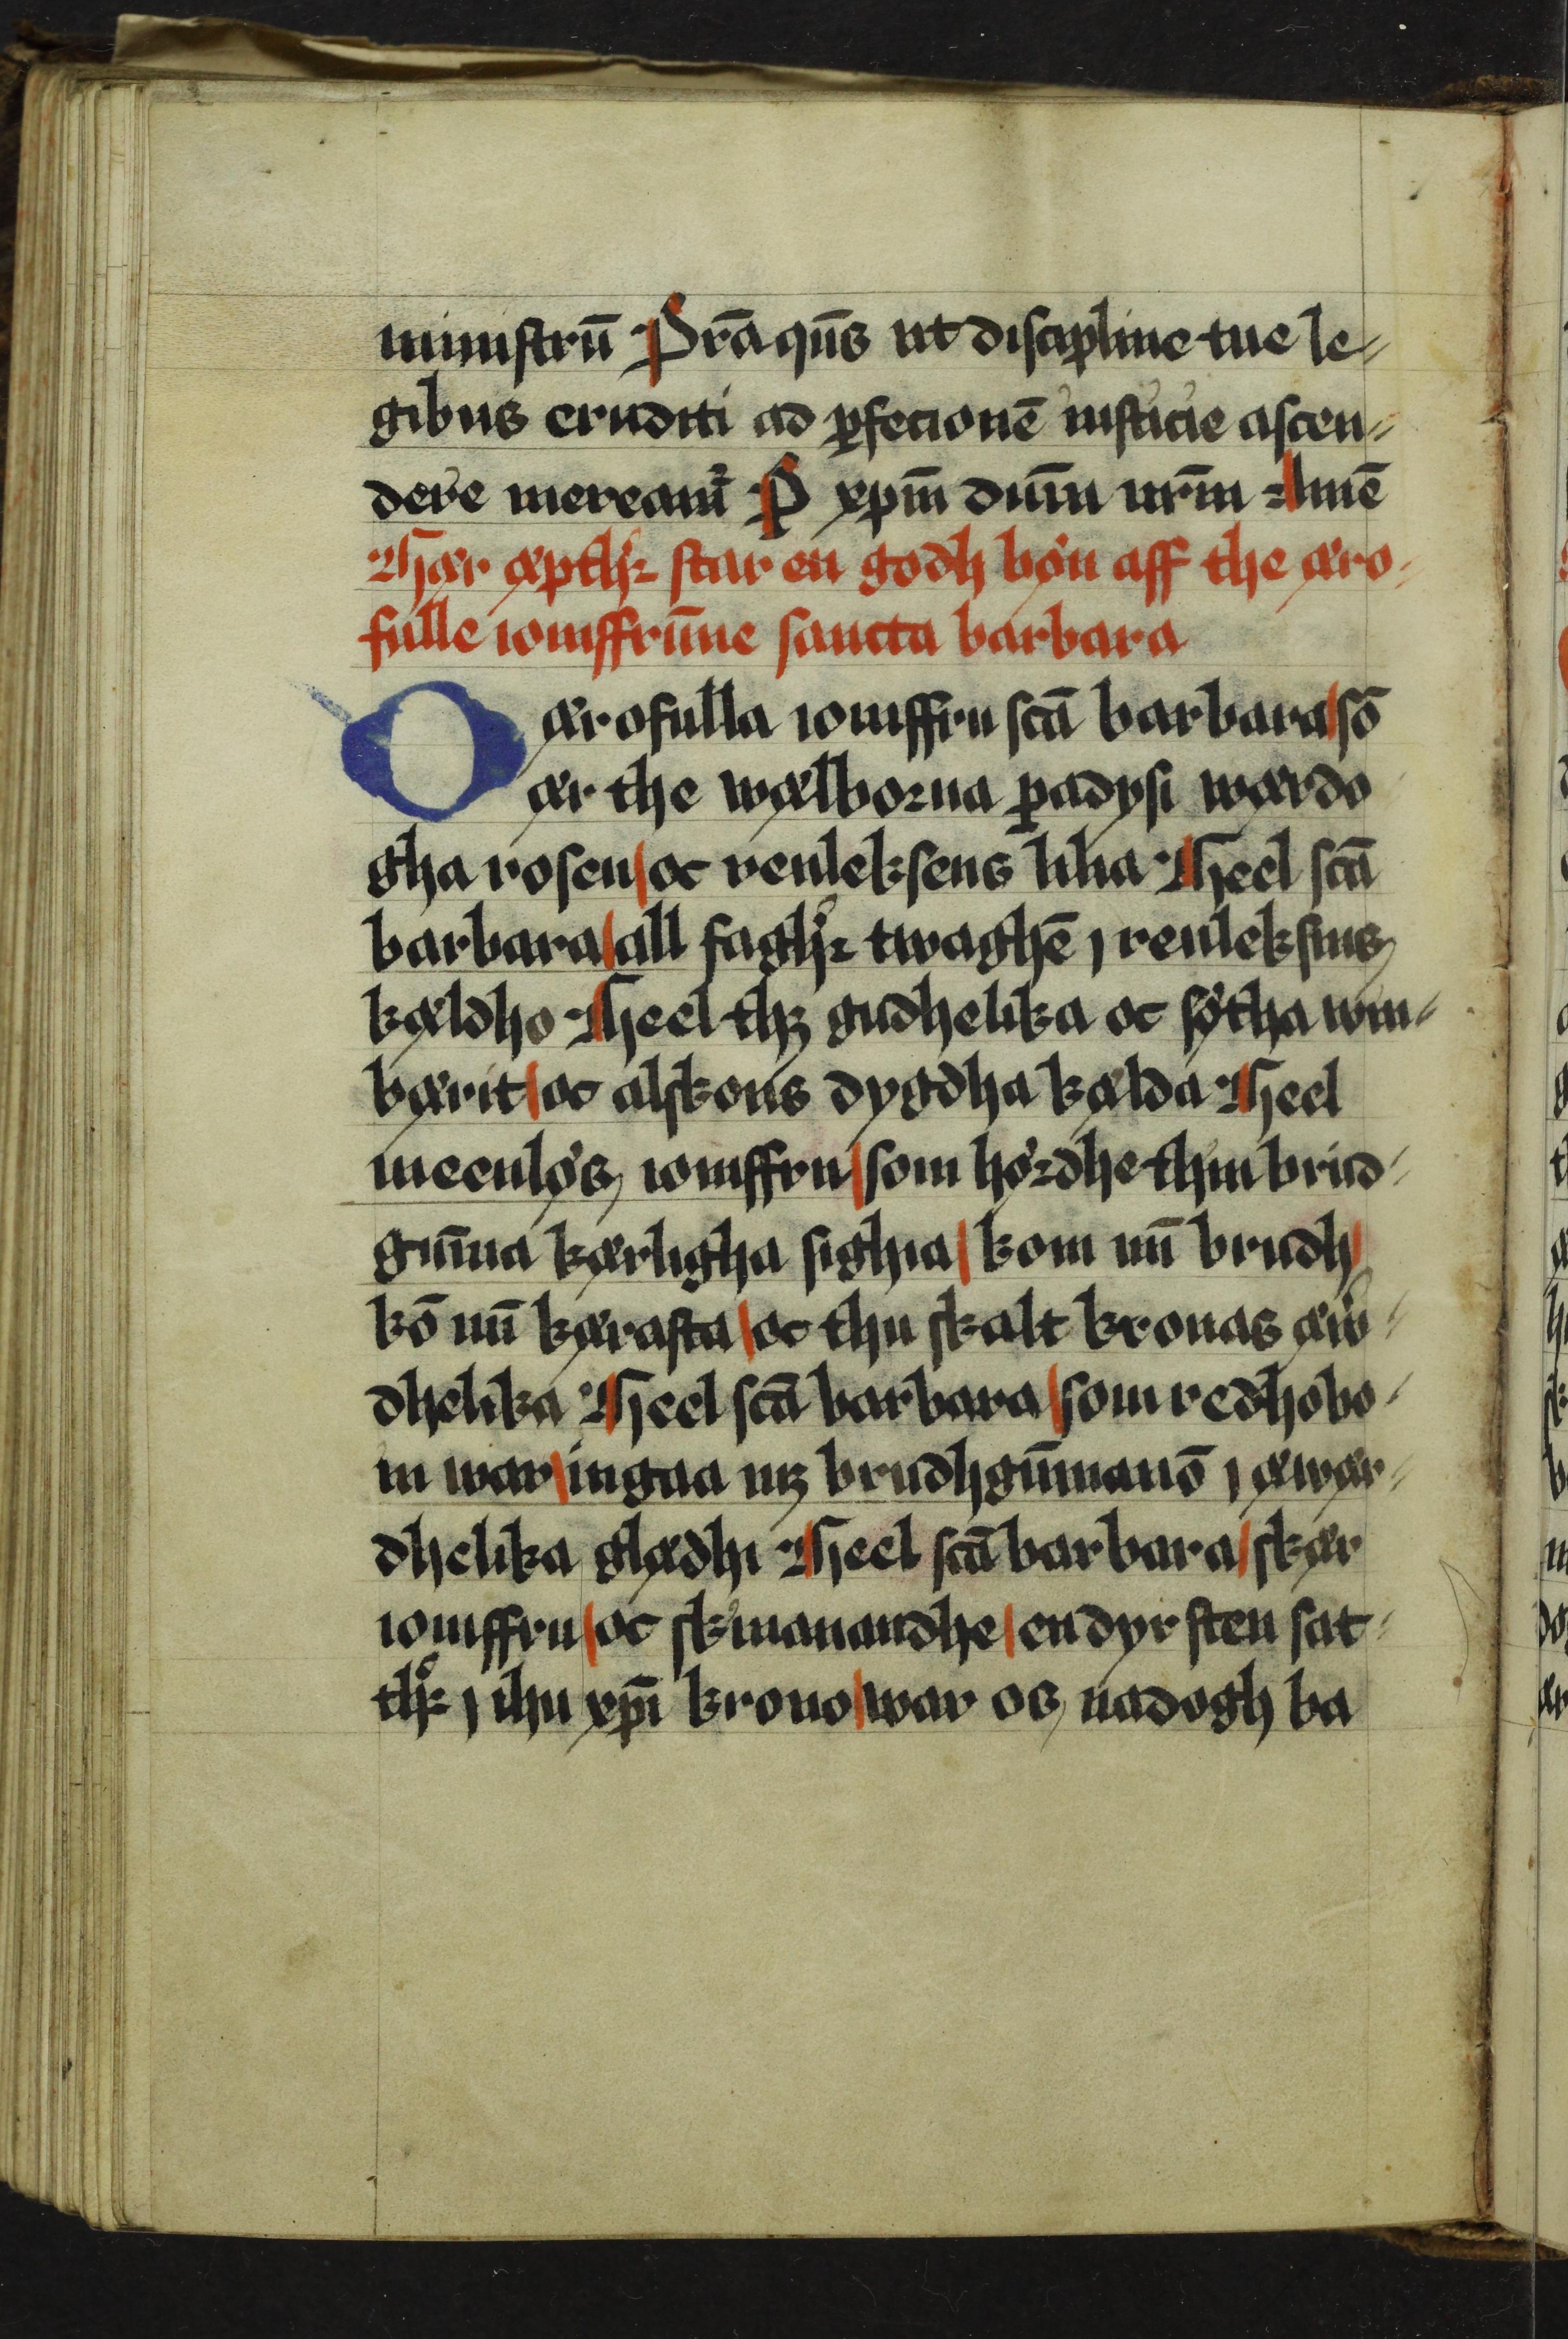 ministrū P̄ra qn̄s ut discipline tue le⸗
gibus eruditi ad ꝑfecionē iusticie ascen⸗
dere mereamr̄ P xpm̄ dūm nr̄m Amē
Hær æpthꝛ star en godh bøn aff the æro⸗
fulle iomffrūne sancta barbara
O ærofulla iomffru scā barbara sō
ær the wælboꝛna ꝑadysi wærdo
gha rosen oc renleksens lilia Heel scā
barbara all faghꝛ twaghē j renleksins
kældho Heel thꝫ gudhelika oc søtha win⸗
bærit oc alskons dygdha kælda Heel
meenløs iomffru som høꝛdhe thin brud⸗
gūma kærligha sighia kom mī brudh
kō mī kærasta oc thu skalt kronas æw⸗
dhelika Heel scā barbara som redhobo⸗
in war ingaa mꝫ brudhgūmanō j æwær⸗
dhelika glædhi Heel scā barbara skær
iomffru oc skinanandhe en dyr sten sat⸗
thꝛ j ihu xpī krono war os nadogh ba